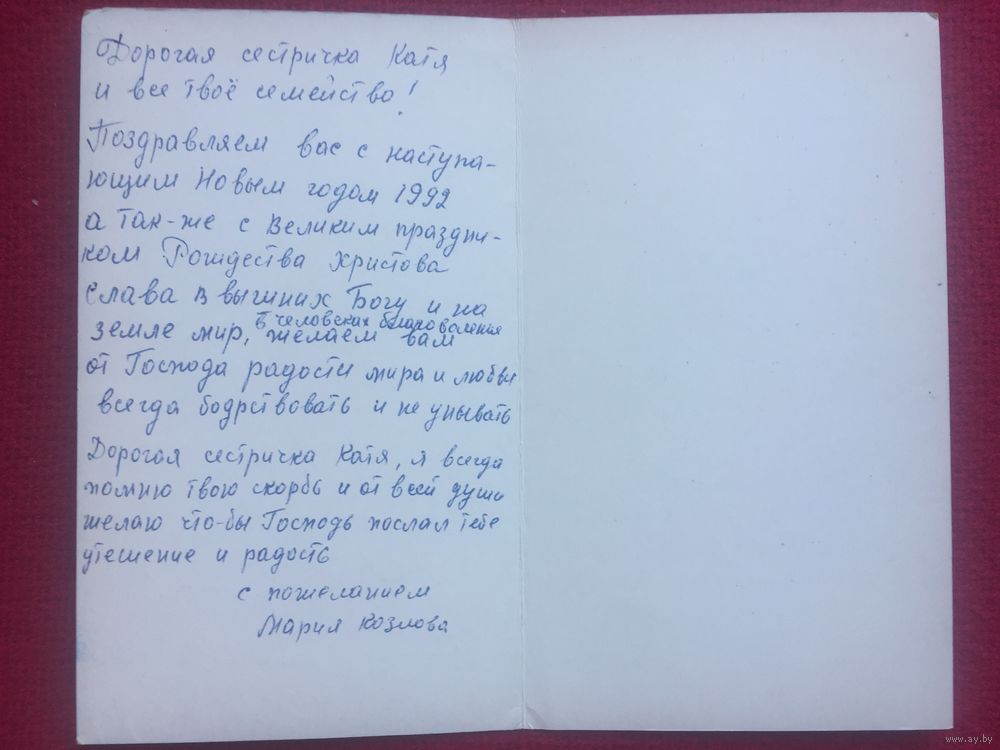 Дорогая сестричка Катя
и все твоё семейство!
Поздравляем вас с наступа-
ющим Новым годом 1992
а так-же с Великим праздни-
ком Рождества Христова
Слава в вышних Богу и на
земле мир, в человеках благоволение
желаем вам
от Господа радости мира и любви
всегда бодрствовать и не унывать
Дорогая сестричка Катя, я всегда
помню твою скорбь и от всей души
желаю что-бы Господь послал тебе
утешение и радость
с пожеланием
Мария Козлова
www.ay.by